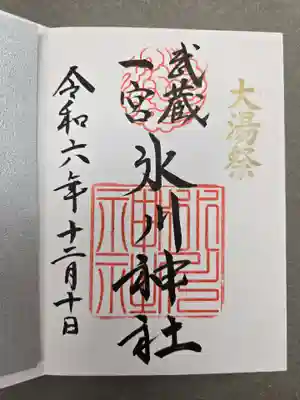 大湯祭
武蔵
一宮
氷川神社
令和六年十二月十日
氷川神社